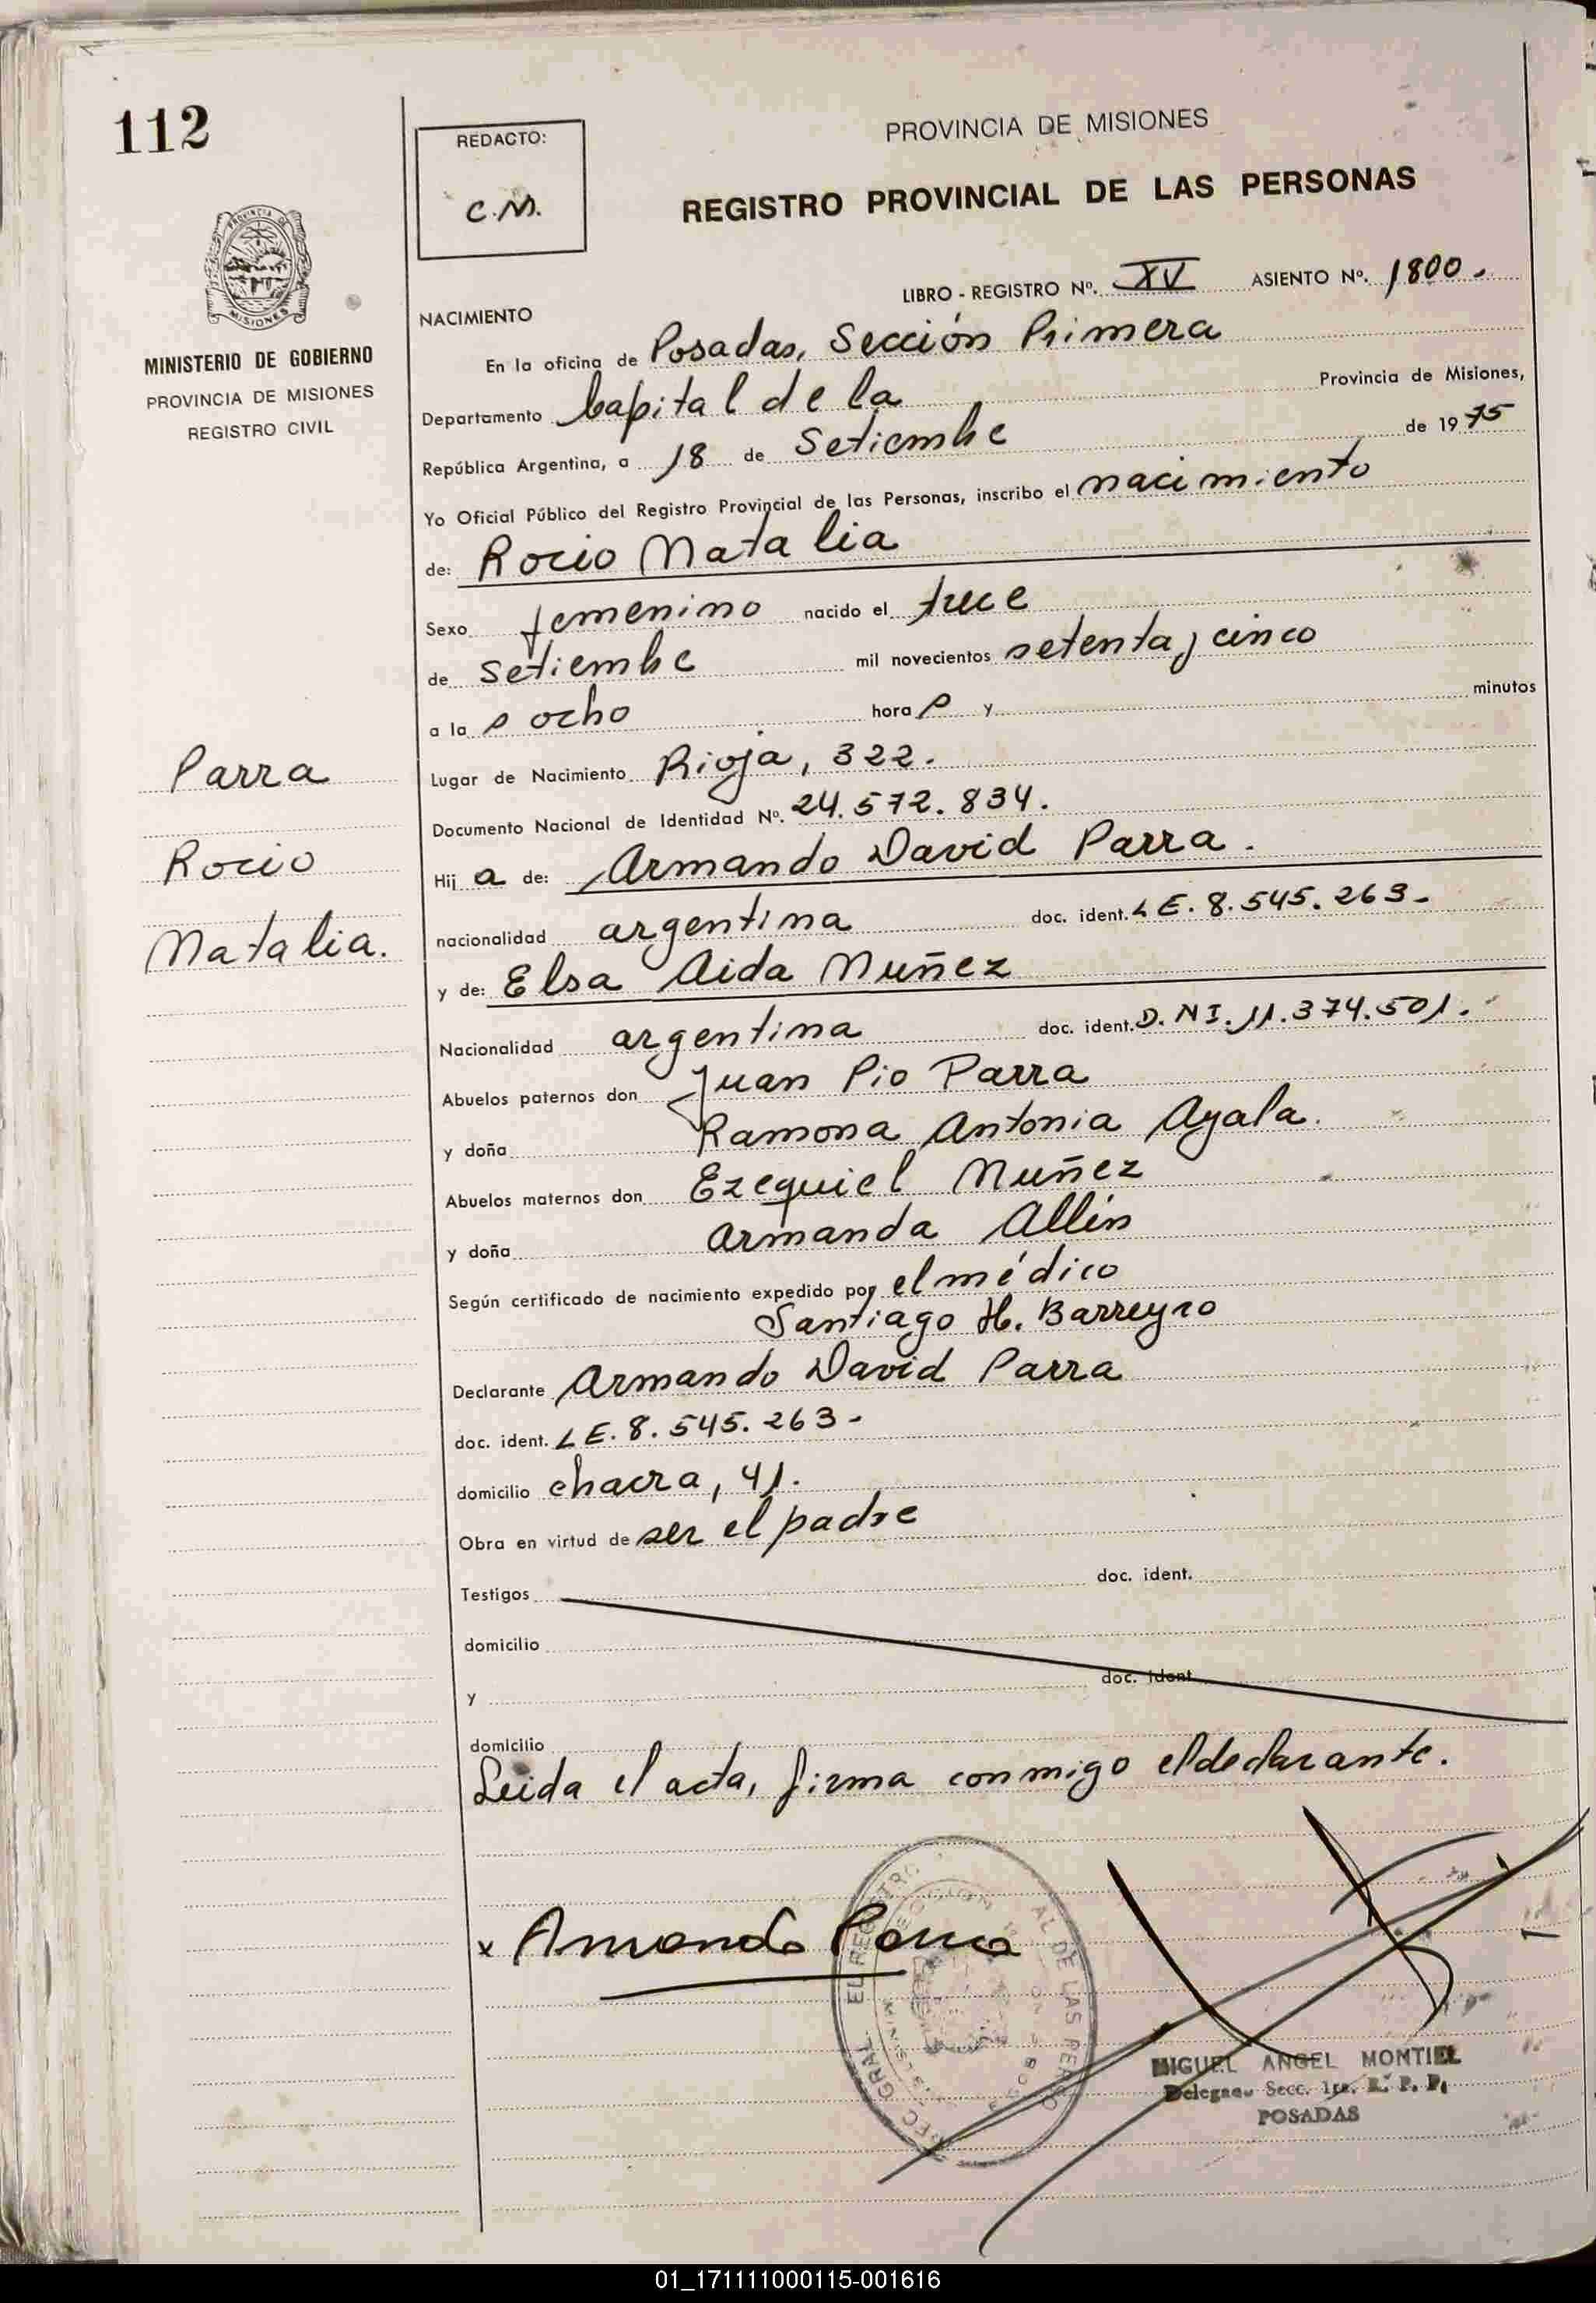 112
REDACTO:
C.M.
PROVINCIA DE MISIONES
REGISTRO PROVINCIAL DE LAS PERSONAS
PROVINCIA DE
MISIONES
MINISTERIO DE GOBIERNO
PROVINCIA DE MISIONES
REGISTRO CIVIL
LIBRO - REGISTRO Nº. XV ASIENTO Nº. 1800.
NACIMIENTO
En la oficina de Posadas, Sección Primera
Departamento Capital de la Provincia de Misiones,
República Argentina, a 18 de Setiembre de 1975
Yo Oficial Público del Registro Provincial de las Personas, inscribo el nacimiento
de: Rocio Natalia
Sexo femenino nacido el trece
de Setiembre mil novecientos setenta y cinco
a la s ocho hora s y minutos
Lugar de Nacimiento Rioja, 322.
Documento Nacional de Identidad Nº. 24.572.834.
Hij a de: Armando David Parra.
nacionalidad argentina doc. ident. LE. 8.545.263-
y de: Elsa Aida Nuñez
Nacionalidad argentina doc. ident. D.NI. 11.374.501.
Abuelos paternos don Juan Pio Parra
y doña Ramona Antonia Ayala.
Abuelos maternos don Ezequiel Nuñez
y doña Armanda Allin
Según certificado de nacimiento expedido por el médico
Santiago H. Barreyro
Declarante Armando David Parra
doc. ident. LE. 8.545.263-
domicilio chacra, 41.
Obra en virtud de ser el padre
Testigos doc. ident.
domicilio
y doc. ident
domicilio
Leida el acta, firma conmigo el declarante.
Parra
Rocio
Natalia.
x Armando Parra
MIGUEL ANGEL MONTIEL
Secc. 1ra. R. P. P.
POSADAS
01_171111000115-001616